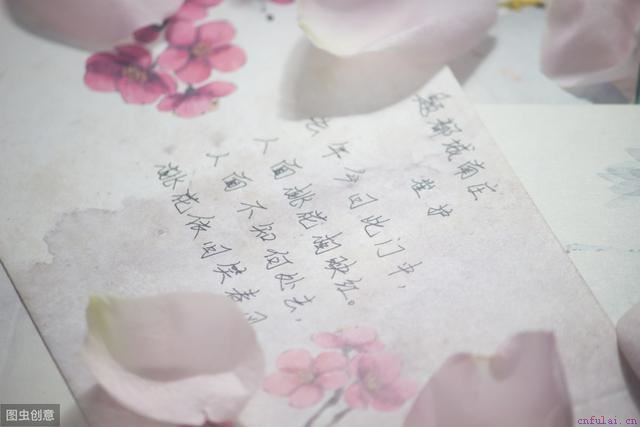 题都城南庄
崔护
去年今日此门中，
人面桃花相映红。
人面不知何处去，
桃花依旧笑春风
图虫创意
cnfulai.cn